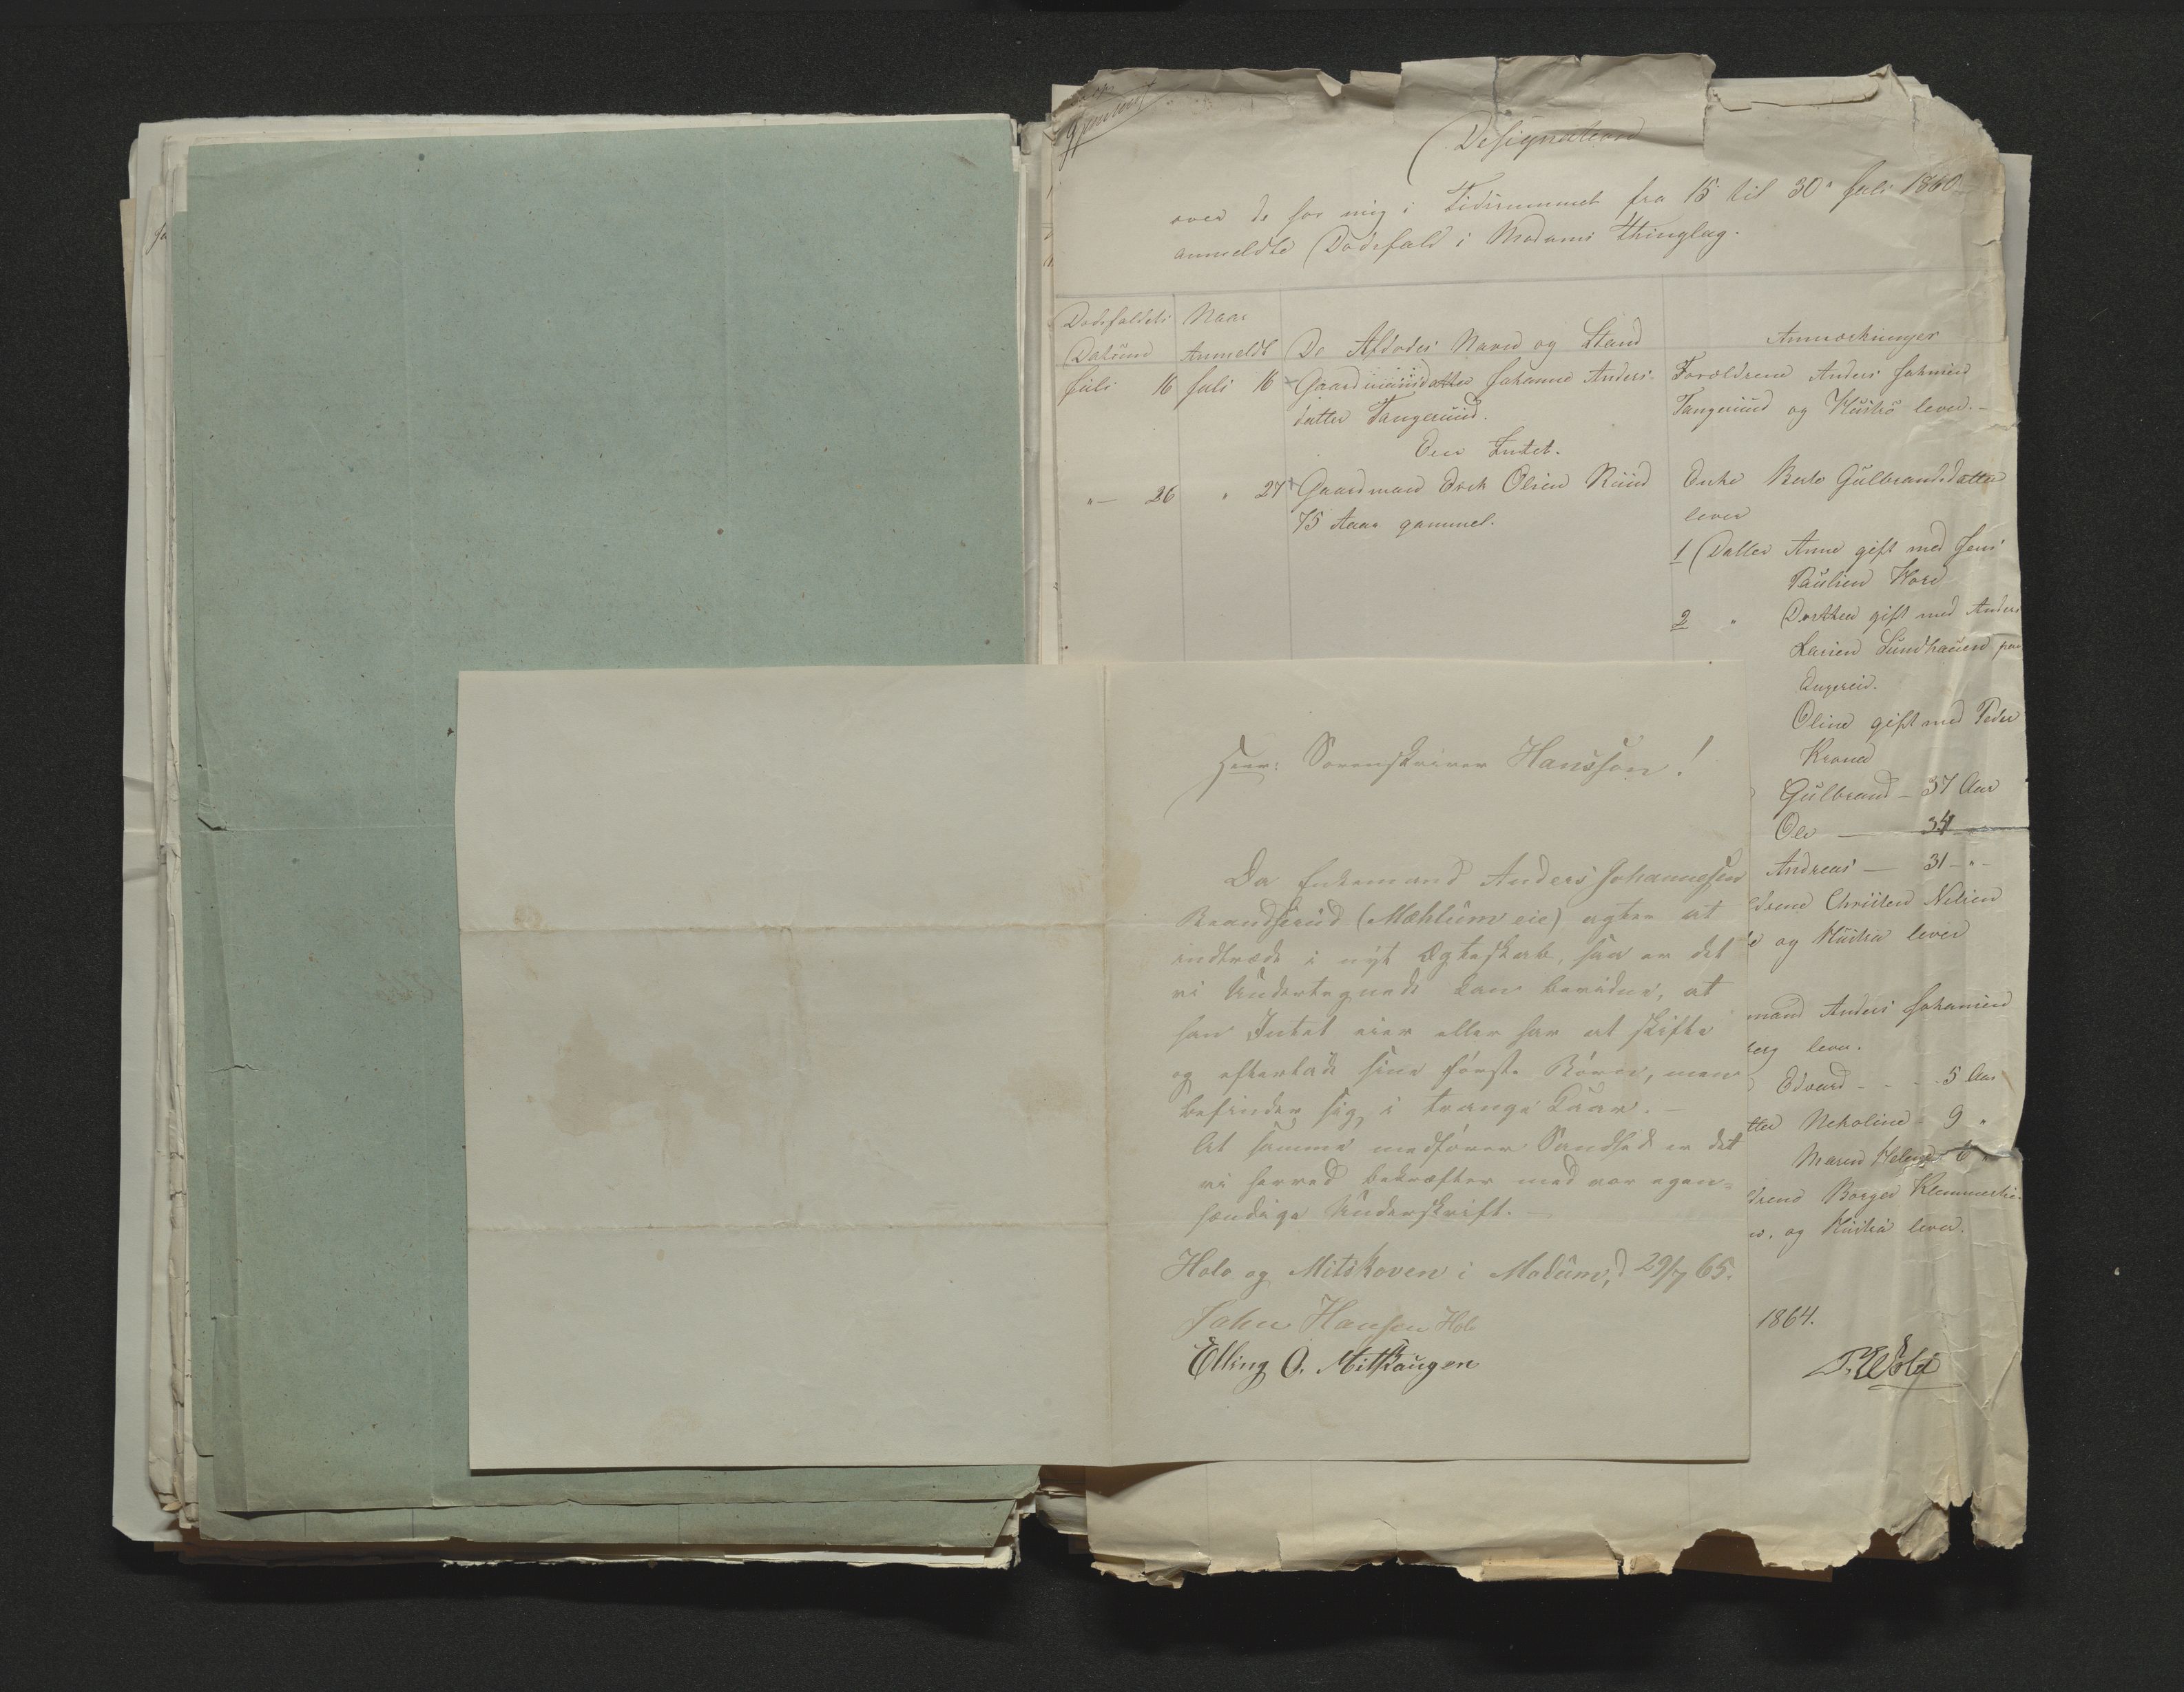 Designation
over de for mig i Tidsrummet fra 15 til 30' Juli 1860
anmeldte Dødsfald i Modums Thinglag.
Dødsfaldets Naar
Datum Anmeldt De Afdødes Navn og Stand Anmærkninger
Juli 16 Juli 16 Gaardmandsdatter Johanne Anders- Forældrene Anders Johnsen
datter Tangerud. Tangerud og Hustro lever. -
Eier Intet.
"- 26 " 27 Gaardmand Erik Olsen Ruud Enke Berte Gulbrandsdatter
75 Aar gammel. lever
1 Datter Anne gift med Jens
Paulsen Hore
2 " Dorthea gift med Anders
Larsen Sundhaugen paa
Engereid.
Oline gift med Peder
Krone
Gulbrand - 37 Aar
Ole — 34
Andreas — 31 - " -
ldrene Christen Nilsen
og Hustru lever
mand Anders Johansen
berg lever.
Edvard - - - 5 Aar
tter Nekoline - 9 "
Maren Helene 6
drene Borger Klemmetse
og Hustru lever.
1864.
T. Wold
Herr: Sorenskriver Hansson!
Da Enkemand Anders Johannesen
Brandserud (Mæhlum eie) agter at
indtræde i nyt Ægteskab, saa er det
vi Undertegnede kan bevidne, at
han Intet eier eller har at skifte
og efterlade sine første Børn, men
befinder sig i trange Kaar. -
At samme medfører Sandhed er det
vi herved bekræfter med vor egen=
hændige Underskrift. -
Hole og Mitskoven i Modum, d 29/7 65.
John Hansen Hole
Elling O. Mitskaugen